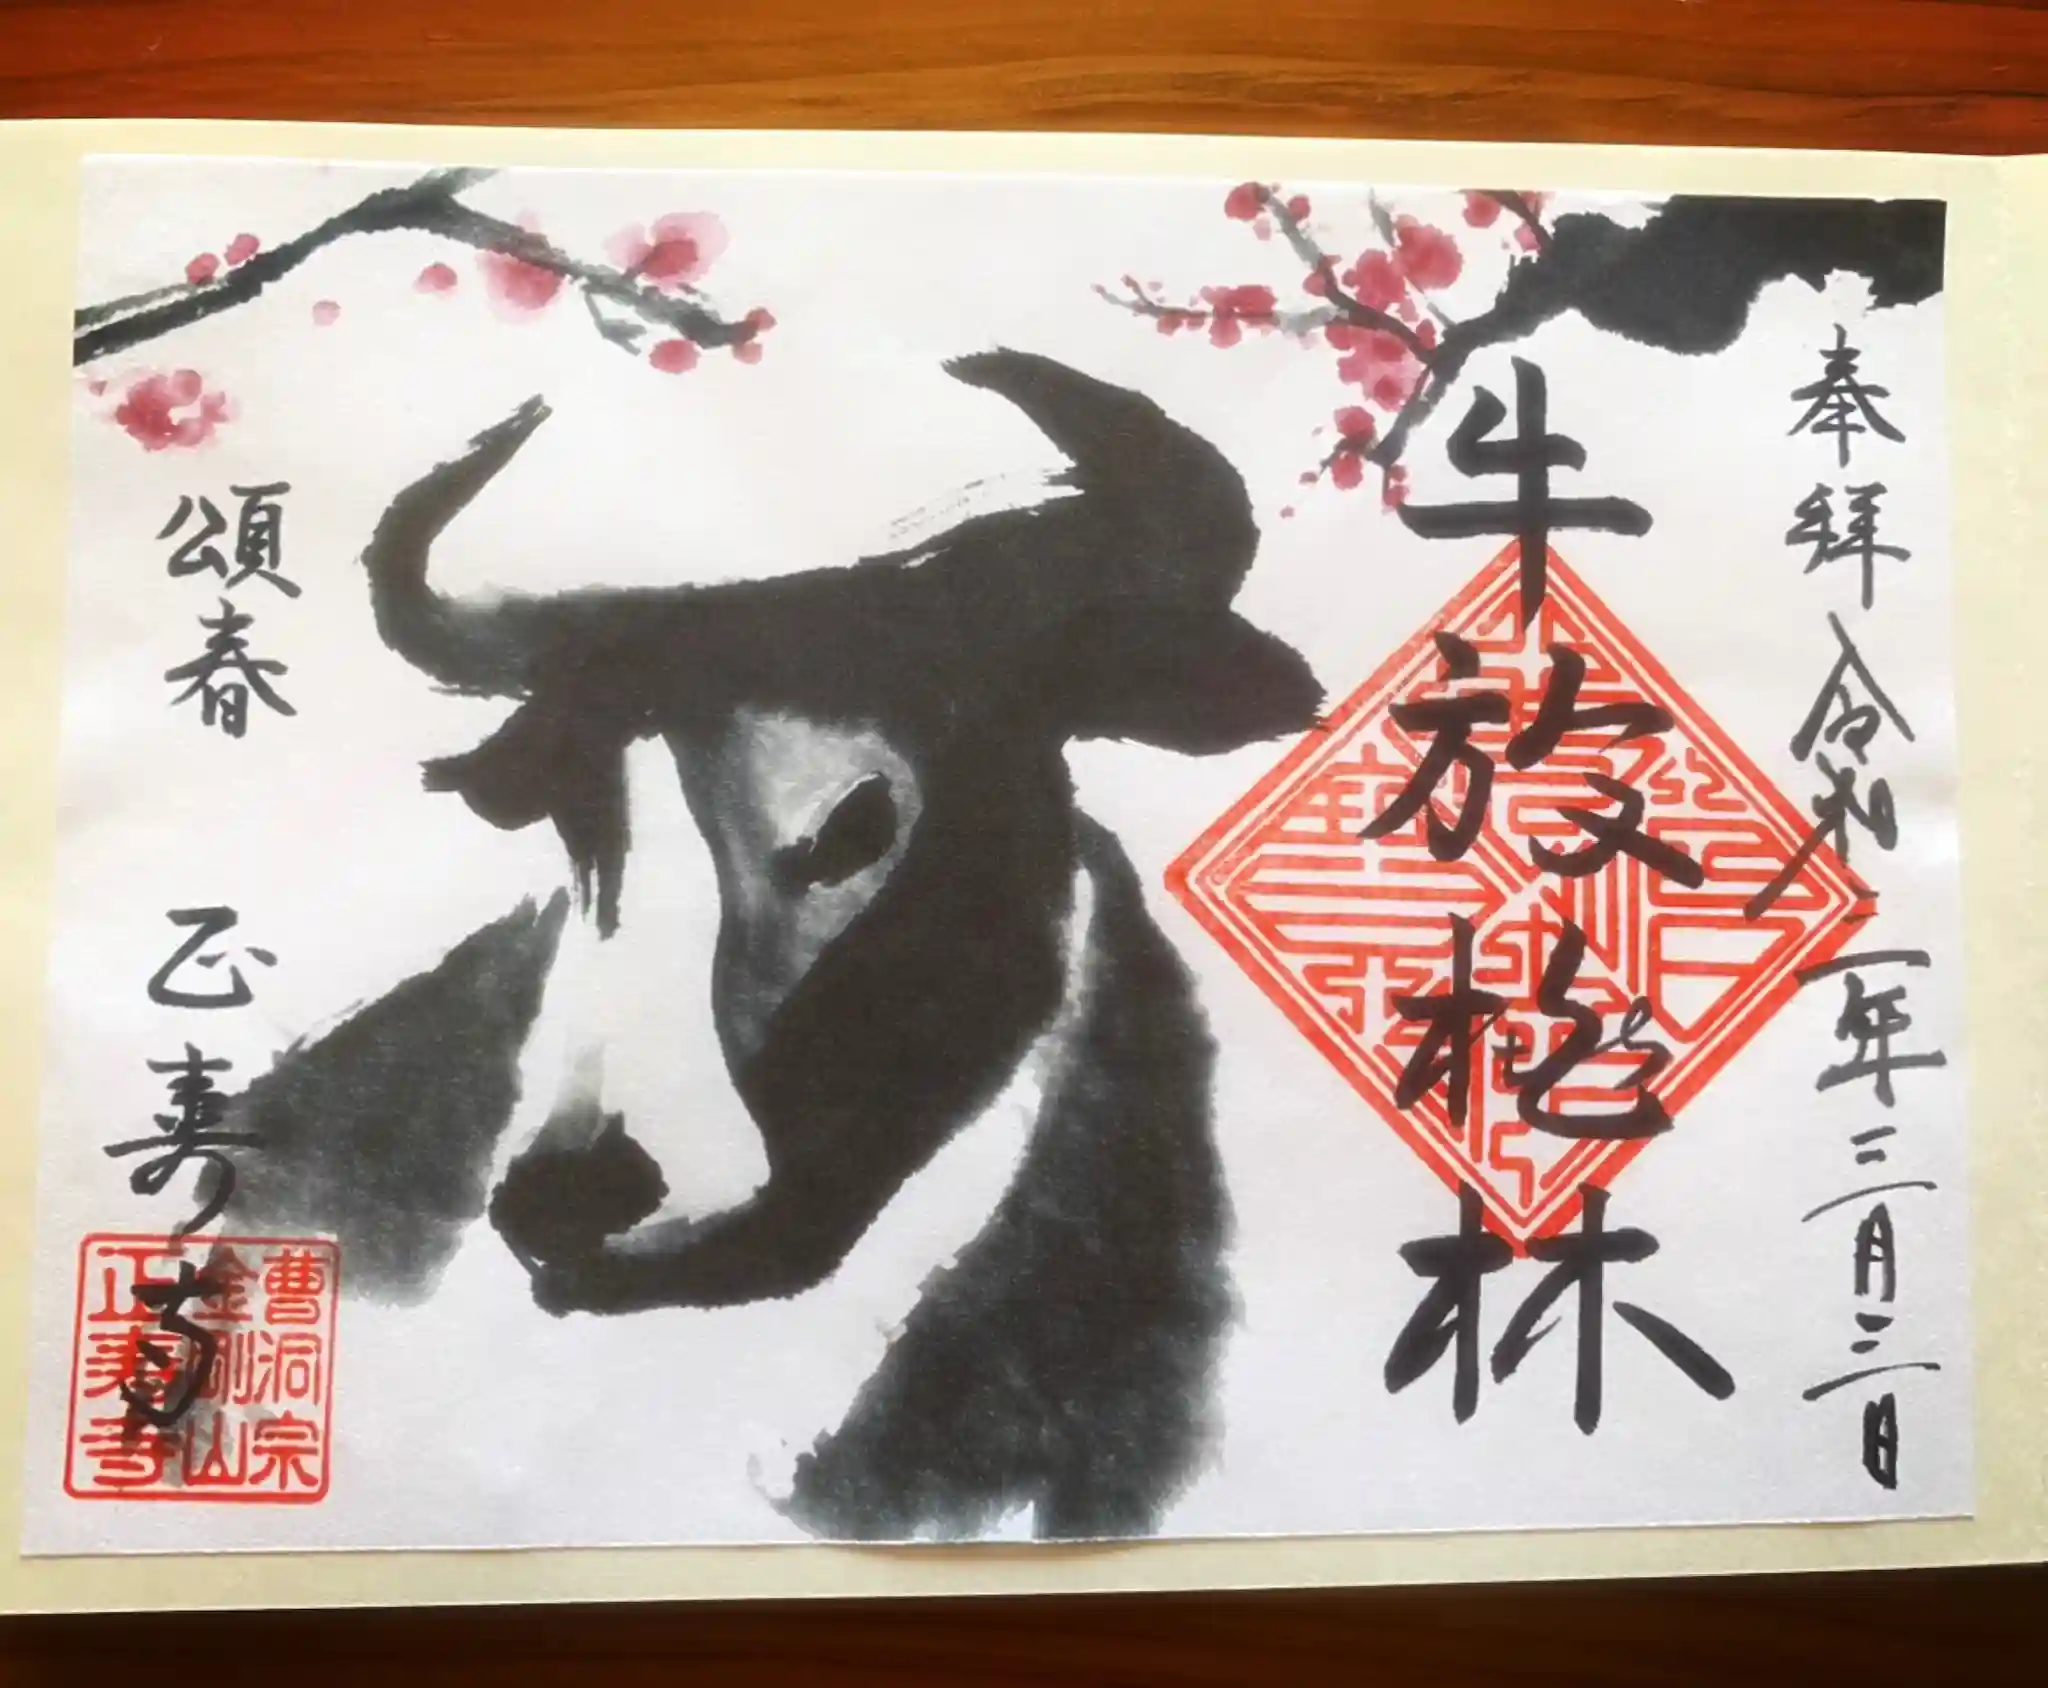 奉拝 令和三年三月三日
牛放桃林
頌春 正寿寺
曹洞宗
金剛山
正寿寺